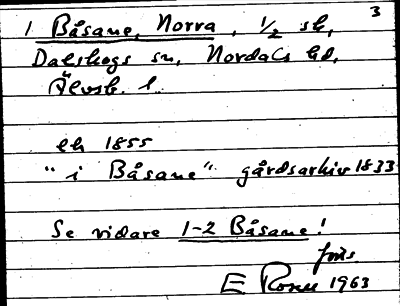 3
1 Båsane, Norra, 1/2 sk,
Dalskogs sn, Nordals hd,
Älvsb. l.
ek 1855
"i Båsane" gårdsarkiv 1833
Se vidare 1-2 Båsane!
E 1963